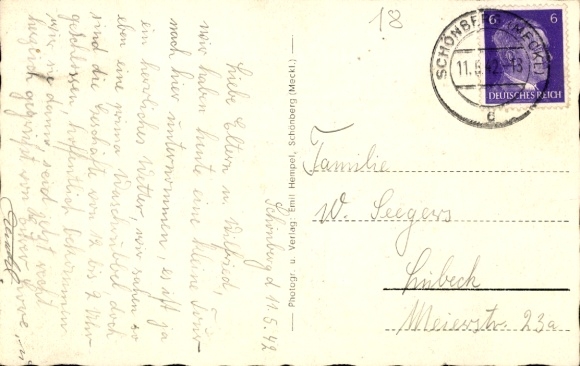 18
SCHÖNBERG (MECKL)
11.6.42
d
6 6
DEUTSCHES REICH
Schönberg d. 11.5.42
Liebe Eltern u. Wilfried,
wir haben heute eine kleine Tour
nach hier unternommen, es ist ja
ein herrliches Wetter, wir haben so
eben eine prima
sind die Geschäfte von 12 bis 2 Uhr
geschlossen, hoffentlich bekommen
wir nie dann, seid jetzt recht
gegrüßt von
Photogr. u. Verlag: Emil Hempel, Schönberg (Meckl.)
Familie
W. Seegers
Lübeck
Meierstr. 23a